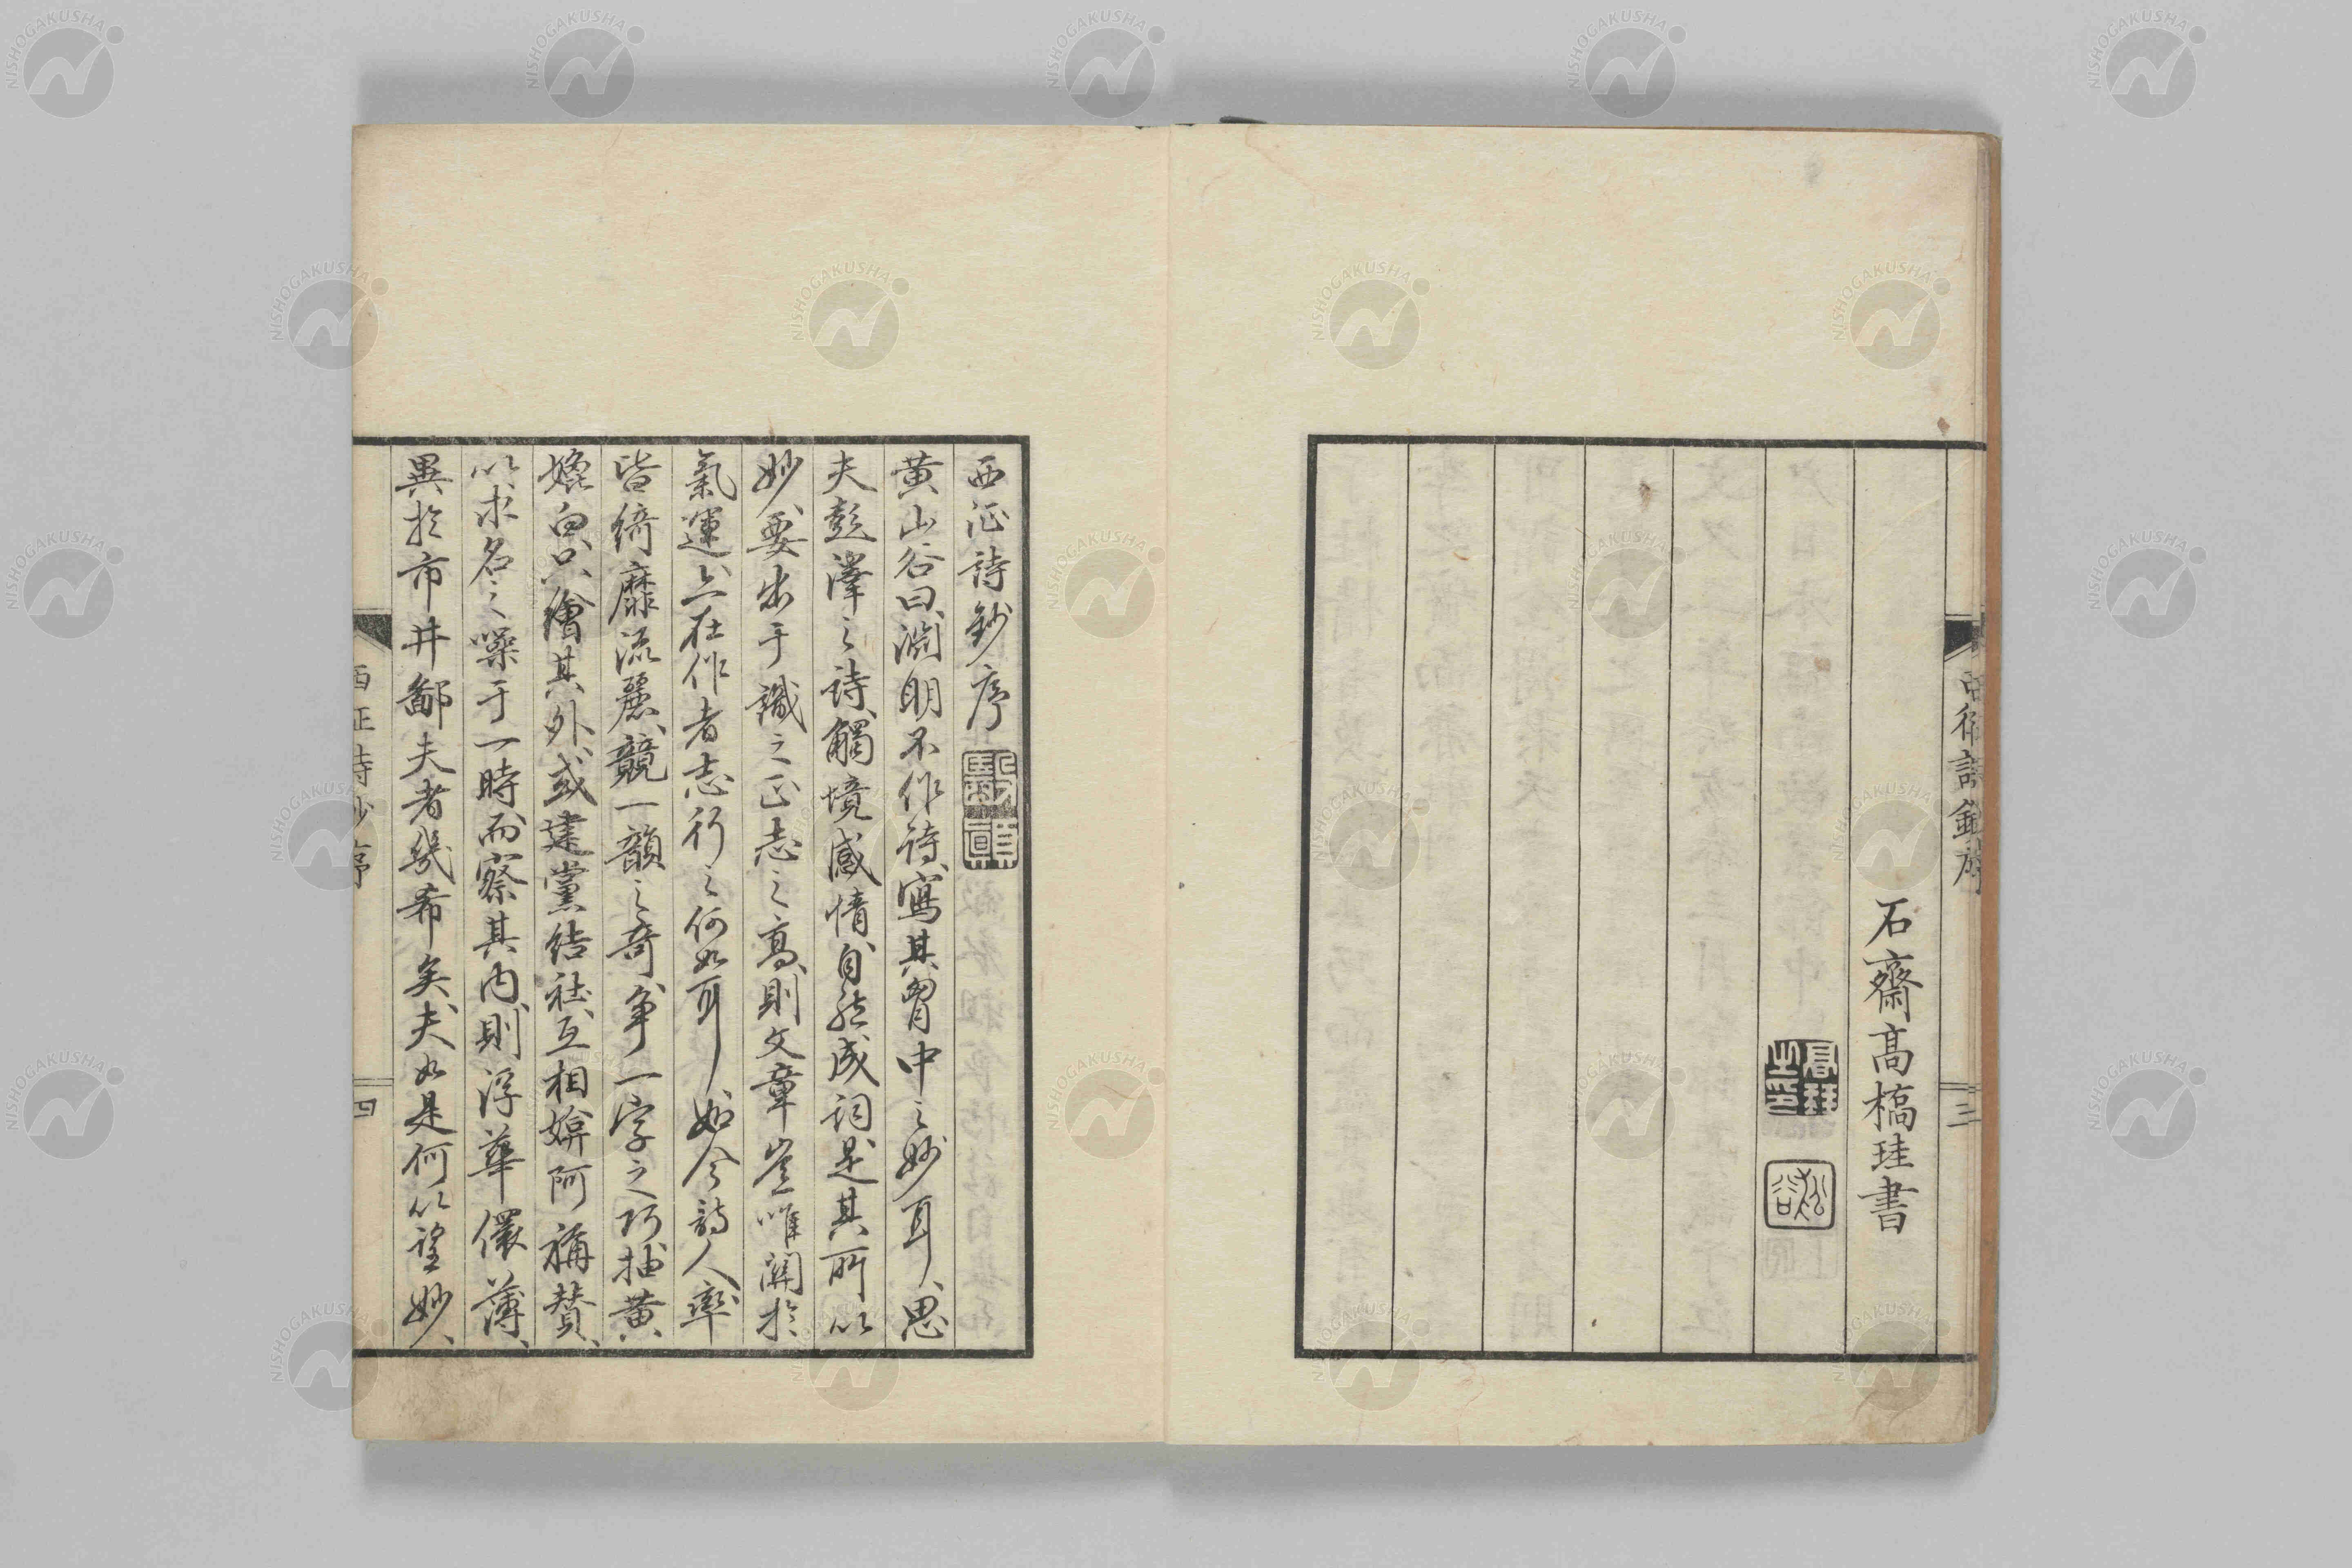 石齋高橋珪書
西征詩鈔序
黄山谷曰、淵明不作詩、寫其胷中之妙耳、思
夫彭澤之詩、觸境感情、自然成詞、是其所以
妙、要出于識之正、志之高、則文章豈唯關於
氣運、亦在作者志行之何如耳、如今詩人率
皆綺靡流麗、競一韻之奇、争一字之巧、抽黄
媲白、只繪其外、或建黨結社、互相媕阿稱賛、
以求名之噪于一時、而察其内、則浮華儇薄、
異於市井鄙夫者幾希矣、夫如是何以望妙、
西征詩鈔序
三
西征詩鈔序
四
NISHOGAKUSHA